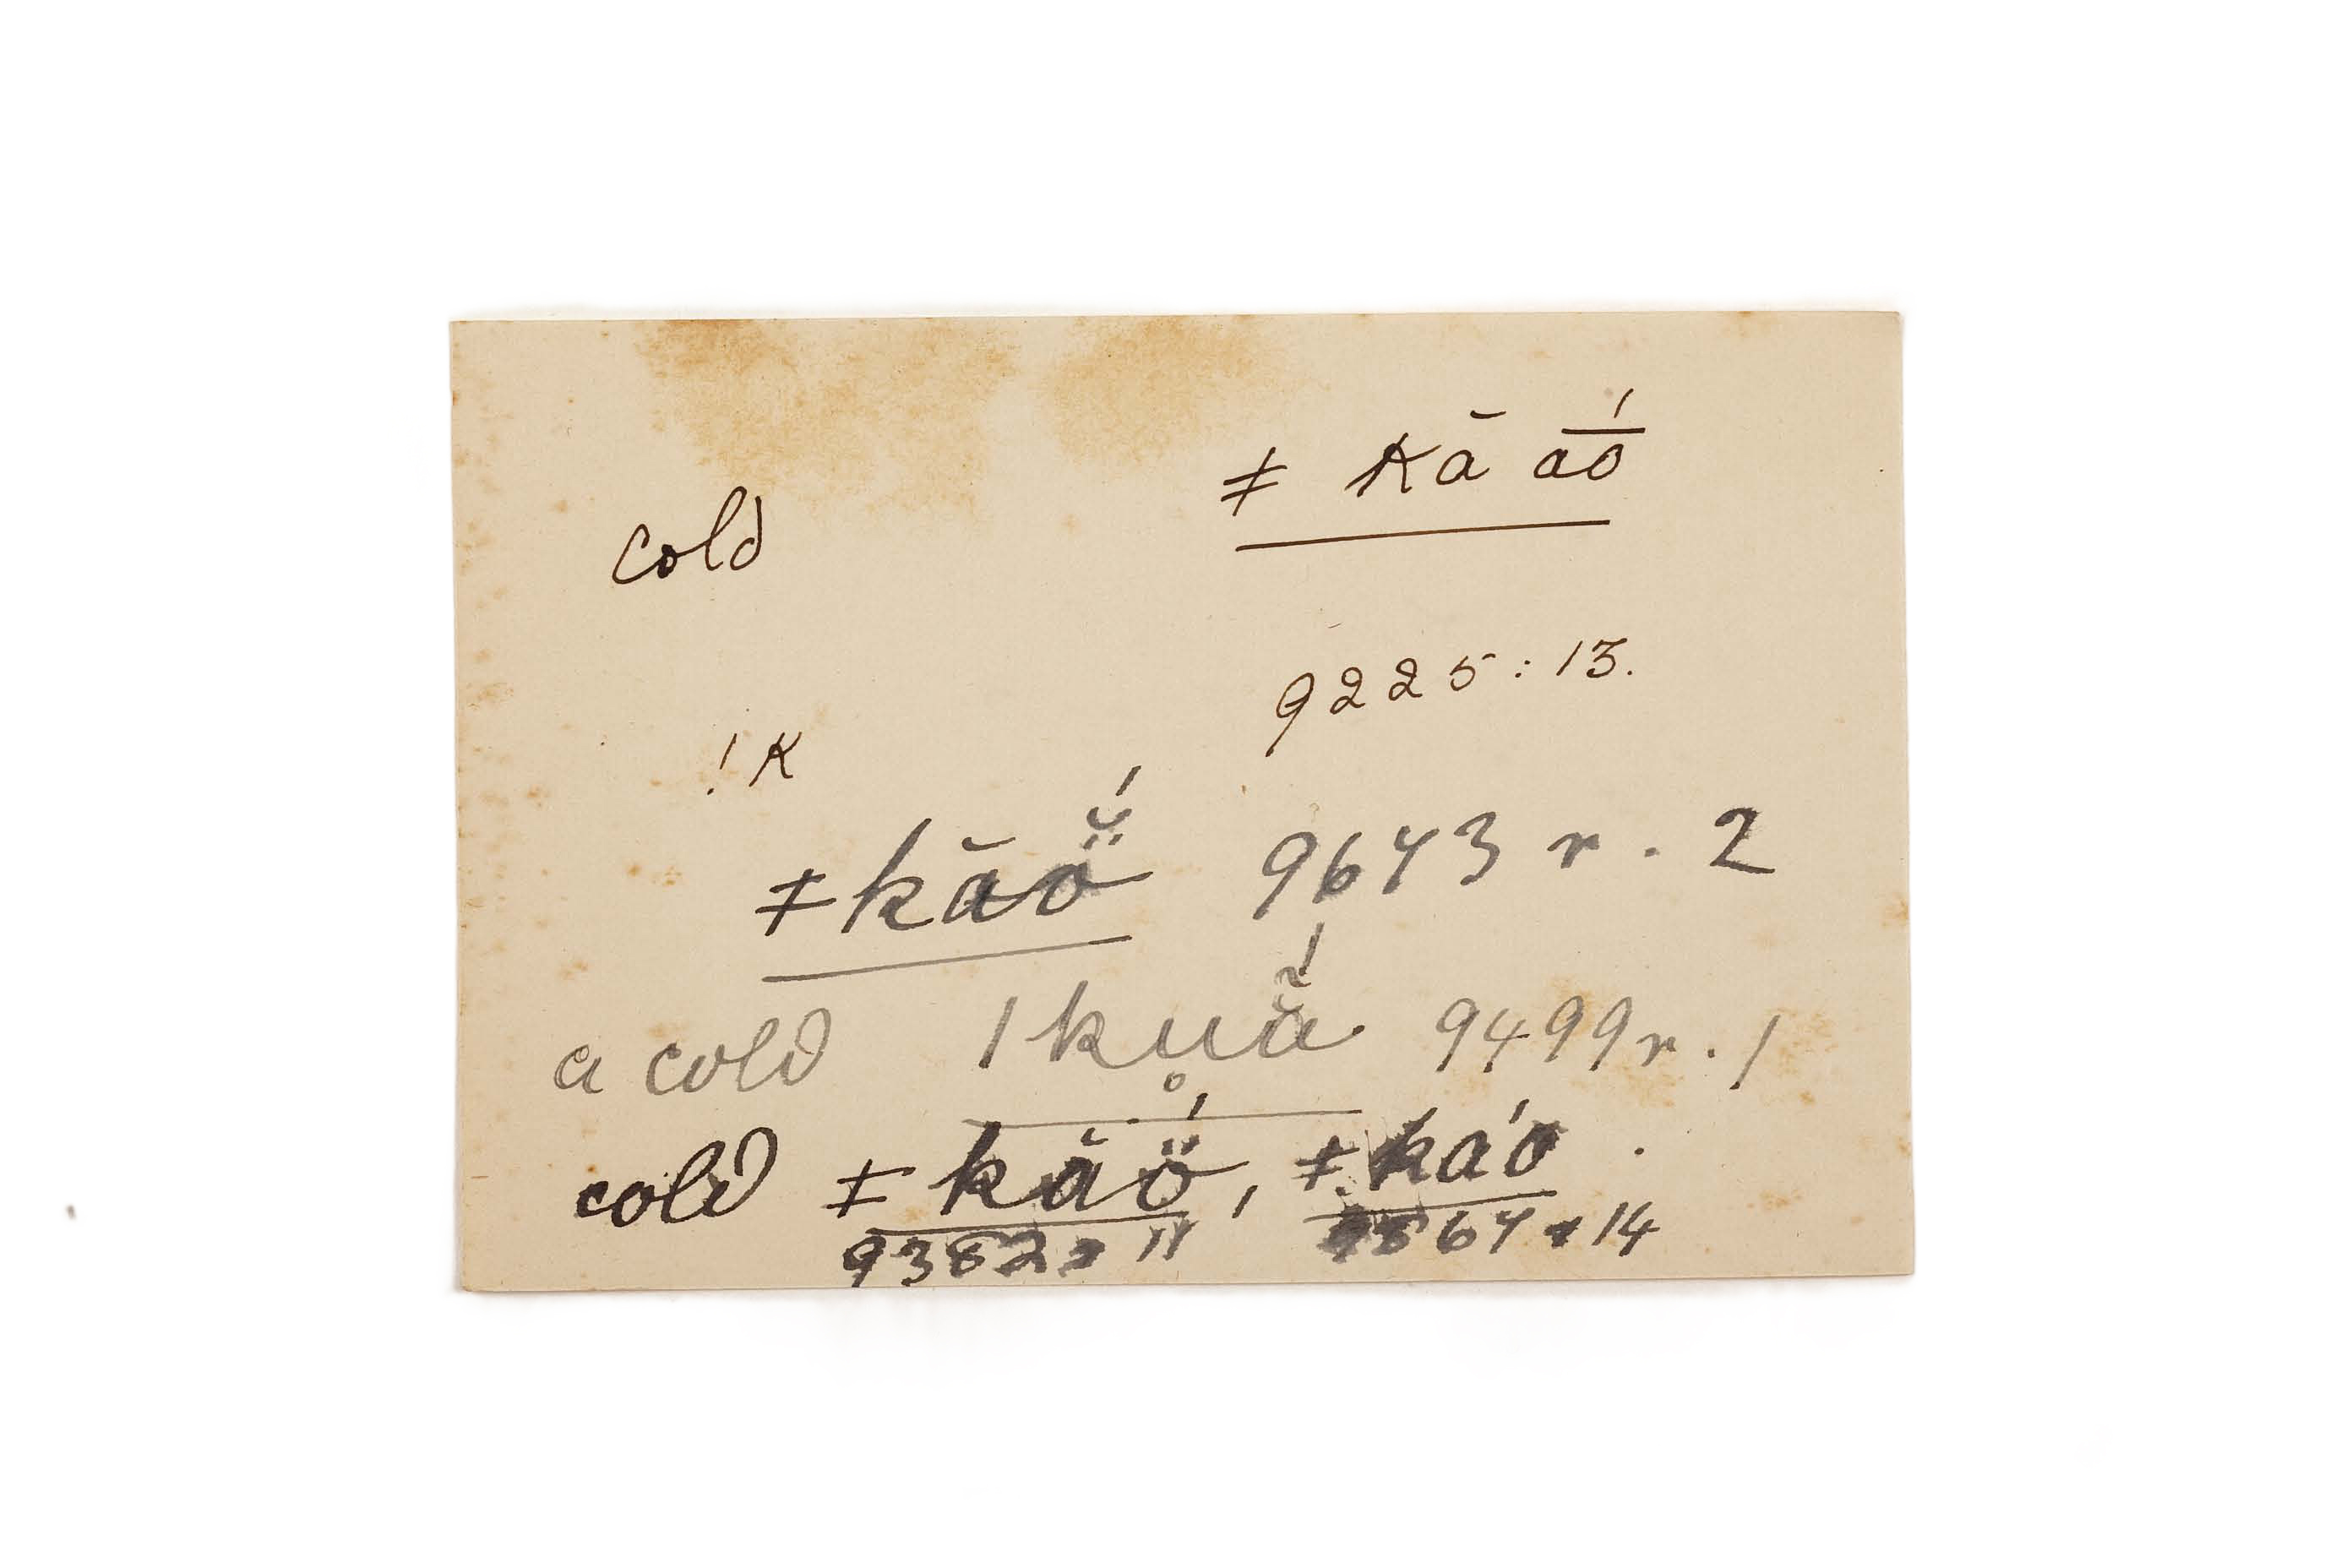 cold ǂ kā aō̄́
9225 : 13.
! K
ǂkăŏ̈́ 9643 r . 2
a cold | ku̥ẵ́ 9499 r . 1
cold ǂ kăŏ̈́ , ǂ káo .
9382 11 67 14